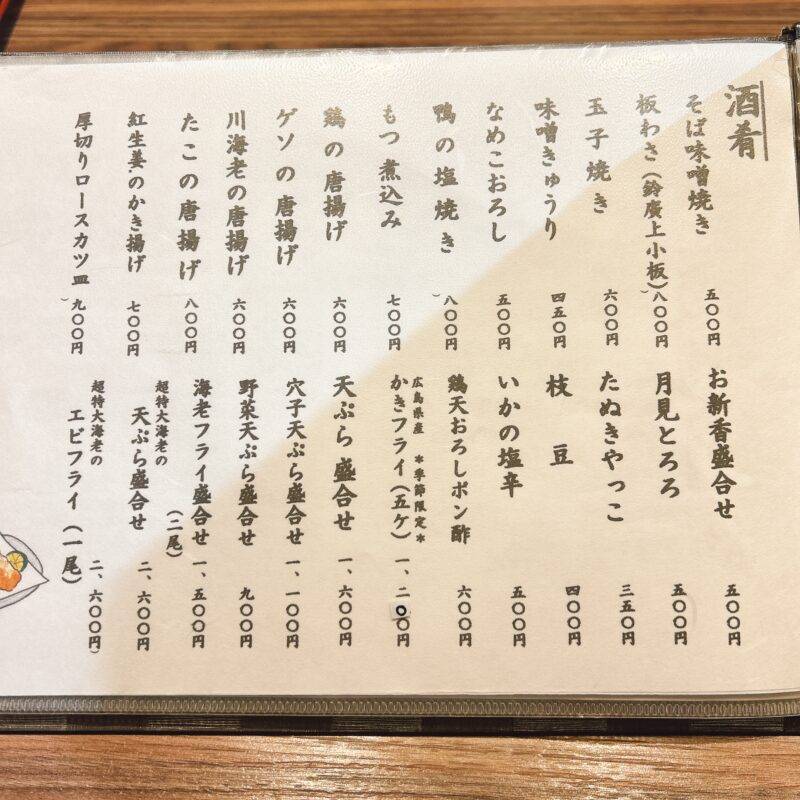 酒肴
そば味噌焼き 五〇〇円
板わさ（鈴廣上小板） 八〇〇円
玉子焼き 六〇〇円
味噌きゅうり 四五〇円
なめこおろし 五〇〇円
鴨の塩焼き 八〇〇円
もつ煮込み 七〇〇円
鶏の唐揚げ 六〇〇円
ゲソの唐揚げ 六〇〇円
川海老の唐揚げ 六〇〇円
たこの唐揚げ 八〇〇円
紅生姜のかき揚げ 七〇〇円
厚切りロースカツ皿 九〇〇円
お新香盛合せ 五〇〇円
月見とろろ 五〇〇円
たぬきやっこ 三五〇円
枝豆 四〇〇円
いかの塩辛 五〇〇円
鶏天おろしポン酢 六〇〇円
広島県産 ＊季節限定＊
かきフライ（五ケ） 一、二〇〇円
天ぷら盛合せ 一、六〇〇円
穴子天ぷら盛合せ 一、一〇〇円
野菜天ぷら盛合せ 九〇〇円
海老フライ盛合せ（二尾） 一、五〇〇円
超特大海老の
天ぷら盛合せ 二、六〇〇円
超特大海老の
エビフライ（一尾） 二、六〇〇円